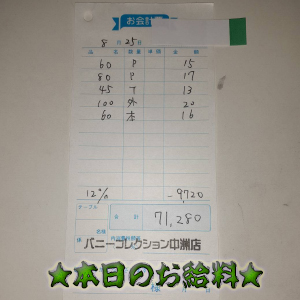 お会計
8月25日
品名 数量 単価 金額
60 P 15
80 P 17
45 T 13
100 外 20
60 本 16
12% -9720
テーブル
合計 71,280
バニーコレクション中洲店
★本日のお給料★
様